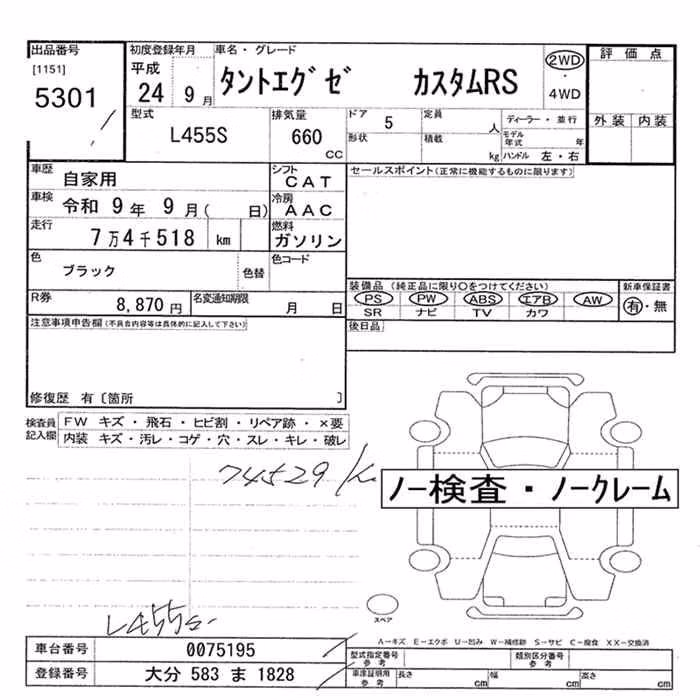 出品番号
[1151]
5301
初度登録年月
平成
24 9月
車名・グレード
タントエグゼ カスタムRS
2WD
・
4WD
評価点
外装 内装
型式
L455S
排気量
660
cc
ドア
5
形状
定員
人
積載
kg
ディーラー・並行
モデル年式 年
ハンドル 左・右
車歴
自家用
シフト
CAT
車検
令和 9年 9月( 日)
冷房
AAC
走行
7万4千518 km
燃料
ガソリン
色
ブラック
色替
色コード
R券
8,870円
名変通知期限
月 日
セールスポイント(正常に機能するものに限ります)
装備品 (純正品に限り○をつけてください)
PS PW ABS エアB AW
SR ナビ TV カワ
新車保証書
有・無
後日品
注意事項申告欄(不具合内容等は具体的に記入して下さい)
修復歴 有〔箇所 〕
検査員記入欄
FW キズ・飛石・ヒビ割・リペア跡・×要
内装 キズ・汚レ・コゲ・穴・スレ・キレ・破レ
74529/Km
ノー検査・ノークレーム
スペア
L455S-
A-キズ E-エクボ U-凹み W-補修跡 S-サビ C-腐食 XX-交換済
車台番号
0075195
登録番号
大分 583 ま 1828
型式指定番号
参考
類別区分番号
参考
車庫証明用
参考
長さ cm
幅 cm
高さ cm